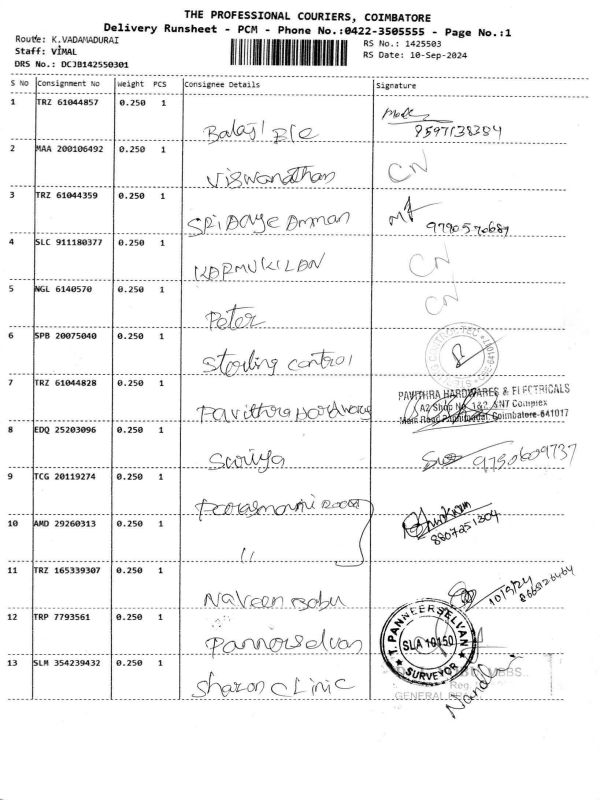 THE PROFESSIONAL COURIERS, COIMBATORE
Delivery Runsheet - PCM - Phone No.:0422-3505555 - Page No.:1
Route: K.VADAMADURAI
RS No.: 1425503
Staff: VIMAL
RS Date: 10-Sep-2024
DRS No.: DCJB142550301
S No Consignment No Weight PCS Consignee Details Signature
1 TRZ 61044857 0.250 1
Balaji Ele 9597138384
2 MAA 200106492 0.250 1
Viswanathan CN
3 TRZ 61044359 0.250 1
SRi Daye Amman 9790570689
4 SLC 911180377 0.250 1
KARMUKILAN CN
5 NGL 6140570 0.250 1
Peter CN
6 SPB 20075040 0.250 1
Sterling control
7 TRZ 61044828 0.250 1
Pavithra Hardware
PAVITHRA HARDWARES & ELECTRICALS
A2 Shop No. 1&2, SNT Complex
Main Road, Coimbatore-641017
8 EDQ 25203096 0.250 1
Suriya 9750609737
9 TCG 20119274 0.250 1
10 AMD 29260313 0.250 1
" 8807251304
11 TRZ 165339307 0.250 1
Naveen babu 10/9/24
12 TRP 7793561 0.250 1
Pannerselvan
T. PANNEERSELVAN
SLA 10150
SURVEYOR
13 SLM 354239432 0.250 1
Sharon Clinic
MBBS..
Reg.
GENERAL